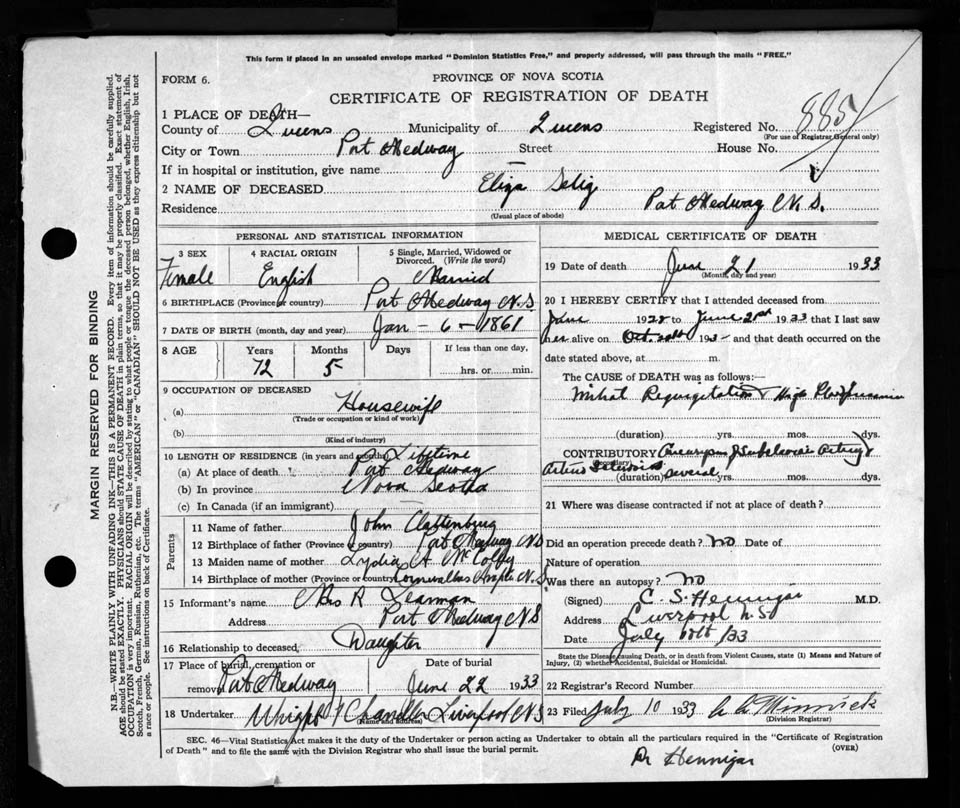 This form if placed in an unsealed envelope marked "Dominion Statistics Free," and properly addressed, will pass through the mails "FREE."
FORM 6.
PROVINCE OF NOVA SCOTIA
CERTIFICATE OF REGISTRATION OF DEATH
885
1 PLACE OF DEATH—
County of Queens Municipality of Queens Registered No.
(For use of Registrar General only)
City or Town Port Medway Street House No.
If in hospital or institution, give name
2 NAME OF DECEASED Eliza Selig
Residence Port Medway N.S.
(Usual place of abode)
PERSONAL AND STATISTICAL INFORMATION
3 SEX 4 RACIAL ORIGIN 5 Single, Married, Widowed or Divorced. (Write the word)
Female English Married
6 BIRTHPLACE (Province or country) Port Medway N.S
7 DATE OF BIRTH (month, day and year) Jan - 6 - 1861
8 AGE Years Months Days If less than one day,
72 5 hrs. or min.
9 OCCUPATION OF DECEASED
(a) Housewife
(Trade or occupation or kind of work)
(b)
(Kind of industry)
10 LENGTH OF RESIDENCE (in years and months) Lifetime
(a) At place of death Port Medway
(b) In province Nova Scotia
(c) In Canada (if an immigrant)
Parents
11 Name of father John Clattenburg
12 Birthplace of father (Province or country) Port Medway N.S
13 Maiden name of mother Lydia A McCoffy
14 Birthplace of mother (Province or country) Cornwallis N.S
15 Informant's name Mrs R Leaman
Address Port Medway N S
16 Relationship to deceased Daughter
17 Place of burial, cremation or removal Date of burial
Port Medway June 22 1933
18 Undertaker Wright & Chandler Liverpool N S
MEDICAL CERTIFICATE OF DEATH
19 Date of death June 21 1933
(Month, day and year)
20 I HEREBY CERTIFY that I attended deceased from
June 1928 to June 21st 1933 that I last saw
her alive on Oct. 193 and that death occurred on
date stated above, at m.
The CAUSE OF DEATH was as follows:—
Mitral Regurgitation & High Blood Pressure
(duration) yrs. mos. dys.
CONTRIBUTORY Aneurysm Subclavian Artery &
(Secondary)
Arterio Sclerosis
(duration) Several yrs. mos. dys.
21 Where was disease contracted if not at place of death?
Did an operation precede death? no Date of
Nature of operation
Was there an autopsy? no
(Signed) C. S. Hennigar M.D.
Address Liverpool N.S
Date July 10th /33
State the Disease causing Death, or in death from Violent Causes, state (1) Means and Nature of Injury, (2) whether Accidental, Suicidal or Homicidal.
22 Registrar's Record Number
23 Filed July 10 1933
(Division Registrar)
SEC. 46—Vital Statistics Act makes it the duty of the Undertaker or person acting as Undertaker to obtain all the particulars required in the "Certificate of Registration
of Death" and to file the same with the Division Registrar who shall issue the burial permit.
(OVER)
Dr Hennigar
MARGIN RESERVED FOR BINDING
N.B.—WRITE PLAINLY WITH UNFADING INK—THIS IS A PERMANENT RECORD. Every item of information should be carefully supplied.
AGE should be stated EXACTLY. PHYSICIANS should STATE CAUSE OF DEATH in plain terms, so that it may be properly classified. Exact statement of
OCCUPATION is very important. RACIAL ORIGIN will be described by stating to what people or tongue the deceased person belonged, whether English, Irish,
Scotch, French, German, Russian, Ruthenian, etc. The terms "AMERICAN" or "CANADIAN" SHOULD NOT BE USED as they express citizenship but not
a race or people. See instructions on back of Certificate.